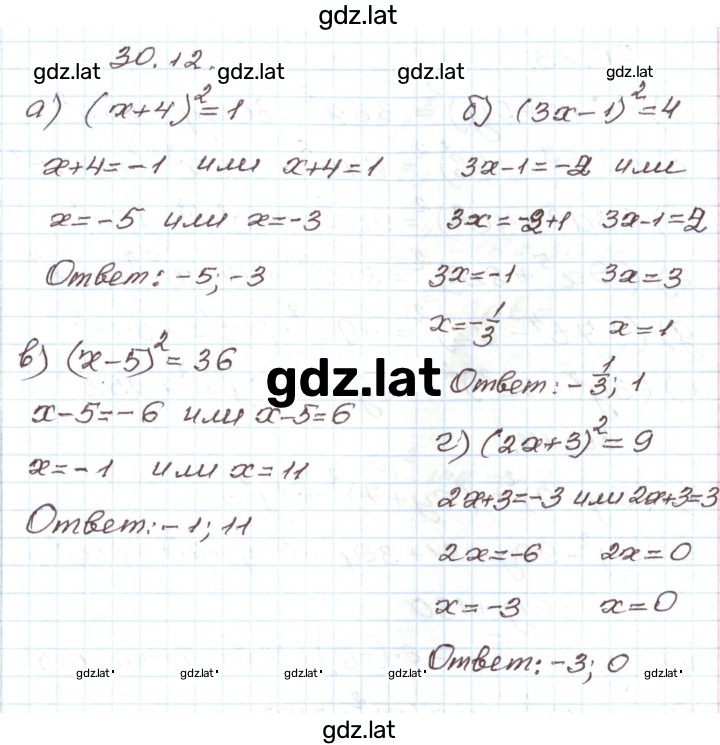 gdz.lat
30.12.
gdz.lat gdz.lat gdz.lat gdz.lat
а) (x+4)²=1
x+4=-1 или x+4=1
x=-5 или x=-3
Ответ: -5; -3
в) (x-5)²=36
x-5=-6 или x-5=6
x=-1 или x=11
Ответ: -1; 11
б) (3x-1)²=4
3x-1=-2 или
3x=-2+1 3x-1=2
3x=-1 3x=3
x=-1/3 x=1
Ответ: -1/3; 1
gdz.lat
г) (2x+3)²=9
2x+3=-3 или 2x+3=3
2x=-6 2x=0
x=-3 x=0
Ответ: -3; 0
gdz.lat gdz.lat gdz.lat gdz.lat gdz.lat
gdz.lat